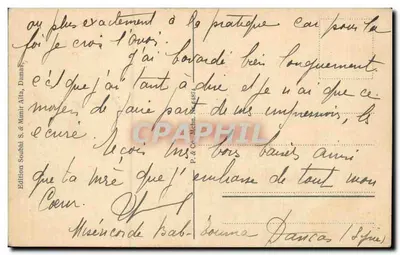 ou plus exactement à la pratique car pour la
foi je crois l'avoir.
J'ai bavardé bien longuement
c'est que j'ai tant à dire et je n'ai que ce
moyen de faire part de mes impressions, les
écrire.
Reçois mes bons baisers ainsi
que ta mère que j'embrasse de tout mon
Cœur.
Miséricorde Bab-touma Damas (Syrie)
Edition Soubhi S. & Munir Aïta, Damas
Cartes Postales